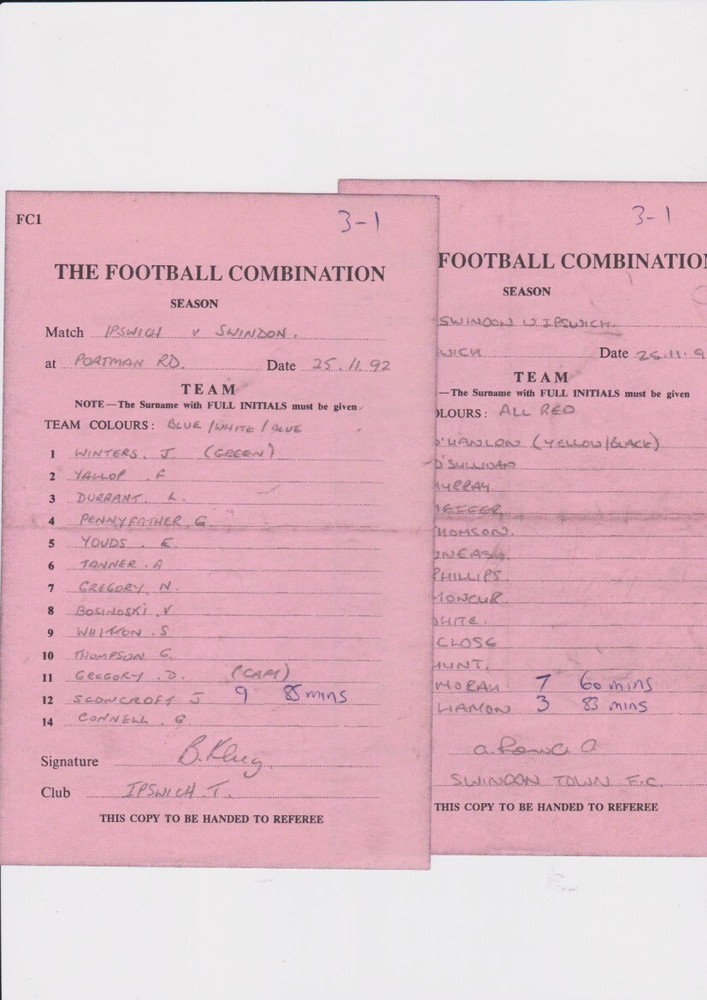 FC1
3-1
THE FOOTBALL COMBINATION
SEASON
Match IPSWICH V SWINDON.
at PORTMAN RD. Date 25.11.92
TEAM
NOTE—The Surname with FULL INITIALS must be given
TEAM COLOURS: BLUE/WHITE/BLUE
1 WINTERS. J (GREEN)
2 YALLOP. F
3 DURRANT. L.
4 PENNYFATHER. G.
5 YOUDS. E.
6 TANNER. A
7 GREGORY. N.
8 BOSINOSKI. V
9 WHITTON. S
10 THOMPSON G.
11 GREGORY. D. (CAPT)
12 SCOWCROFT J 9 85 mins
14 CONNELL. G
Signature B. Klug.
Club IPSWICH. T.
THIS COPY TO BE HANDED TO REFEREE
3-1
FOOTBALL COMBINATIO
SEASON
SWINDON V IPSWICH.
WICH Date 25.11.9
TEAM
—The Surname with FULL INITIALS must be given
OLOURS: ALL RED
O'HANLON (YELLOW/BLACK)
O'SULLIVAN
URRAY
HOMSON.
PHILLIPS.
MONCUR.
HITE.
CLOSE
HUNT.
MORAH 7 60 mins
HAMON 3 83 mins
SWINDON TOWN F.C.
THIS COPY TO BE HANDED TO REFEREE